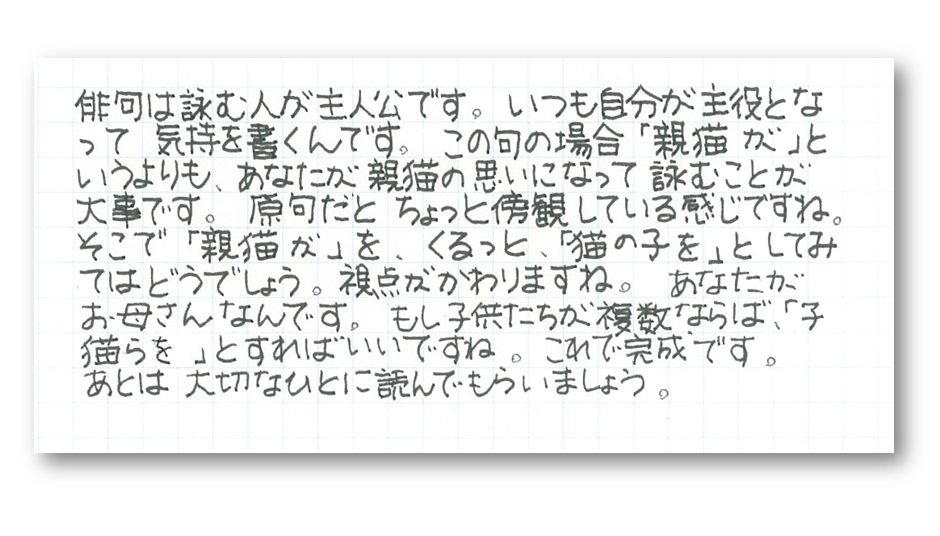 俳句は詠む人が主人公です。いつも自分が主役とな
って 気持を書くんです。この句の場合「親猫が」と
いうよりも、あなたが親猫の思いになって詠むことが
大事です。原句だとちょっと傍観している感じですね。
そこで「親猫が」を、くるっと、「猫の子を」としてみ
てはどうでしょう。視点がかわりますね。あなたが
お母さんなんです。もし子供たちが複数ならば、「子
猫らを」とすればいいですね。これで完成です。
あとは 大切なひとに読んでもらいましょう。